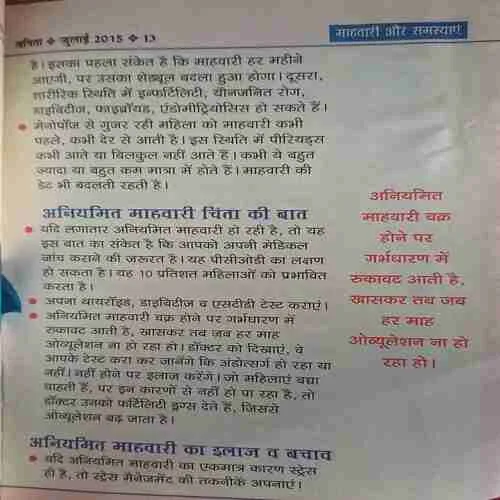 वनिता ❖ जुलाई 2015 ❖ 13
माहवारी और समस्याएं
है। इसका पहला संकेत है कि माहवारी हर महीने
आएगी, पर उसका शेड्यूल बदला हुआ होगा। दूसरा,
शारीरिक स्थिति में इन्फर्टिलिटी, यौनजनित रोग,
डाइबिटीज, फाइब्रॉयड, एंडोमीट्रियोसिस हो सकते हैं।
● मेनोपॉज से गुजर रही महिला को माहवारी कभी
पहले, कभी देर से आती है। इस स्थिति में पीरियड्स
कभी आते या बिलकुल नहीं आते हैं। कभी ये बहुत
ज्यादा या बहुत कम मात्रा में होते हैं। माहवारी की
डेट भी बदलती रहती है।
अनियमित माहवारी चिंता की बात
● यदि लगातार अनियमित माहवारी हो रही है, तो यह
इस बात का संकेत है कि आपको अपनी मेडिकल
जांच कराने की जरूरत है। यह पीसीओडी का लक्षण
हो सकता है। यह 10 प्रतिशत महिलाओं को प्रभावित
करता है।
● अपना थायरॉइड, डाइबिटीज व एसटीडी टेस्ट कराएं।
● अनियमित माहवारी चक्र होने पर गर्भधारण में
रुकावट आती है, खासकर तब जब हर माह
ओव्यूलेशन ना हो रहा हो। डॉक्टर को दिखाएं, वे
आपके टेस्ट करा कर जानेंगे कि अंडोत्सर्ग हो रहा या
नहीं। नहीं होने पर इलाज करेंगे। जो महिलाएं बच्चा
चाहती हैं, पर इन कारणों से नहीं हो पा रहा है, तो
डॉक्टर उनको फर्टिलिटी ड्रग्स देते हैं, जिससे
ओव्यूलेशन बढ़ जाता है।
अनियमित माहवारी का इलाज व बचाव
● यदि अनियमित माहवारी का एकमात्र कारण स्ट्रेस
ही है, तो स्ट्रेस मैनेजमेंट की तकनीकें अपनाएं।
अनियमित
माहवारी चक्र
होने पर
गर्भधारण में
रुकावट आती है,
खासकर तब जब
हर माह
ओव्यूलेशन ना हो
रहा हो।